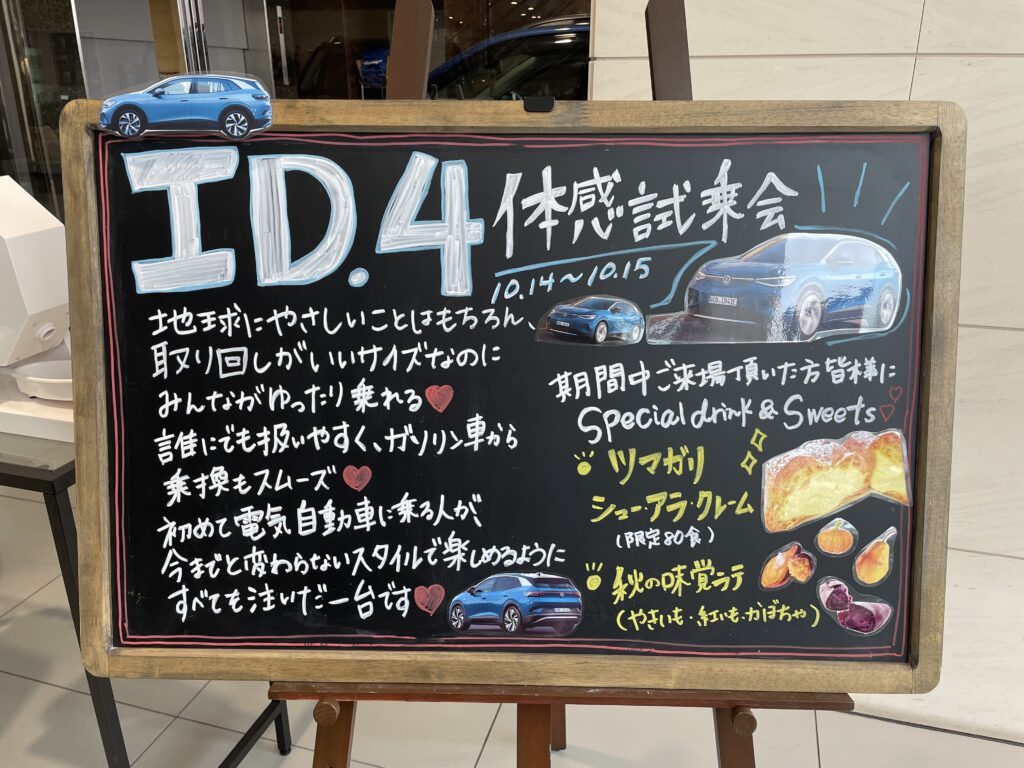 ID.4 体感試乗会
10.14～10.15
地球にやさしいことはもちろん、
取り回しがいいサイズなのに
みんながゆったり乗れる♥
誰にでも扱いやすく、ガソリン車から
乗換もスムーズ♥
初めて電気自動車に乗る人が、
今までと変わらないスタイルで楽しめるように
すべてを注いだ一台です♥
期間中ご来場頂いた方皆様に
Special drink & Sweets♡♡
ツマガリ
シュー・アラ・クレーム
(限定80食)
秋の味覚ラテ
(やさいも・紅いも・かぼちゃ)